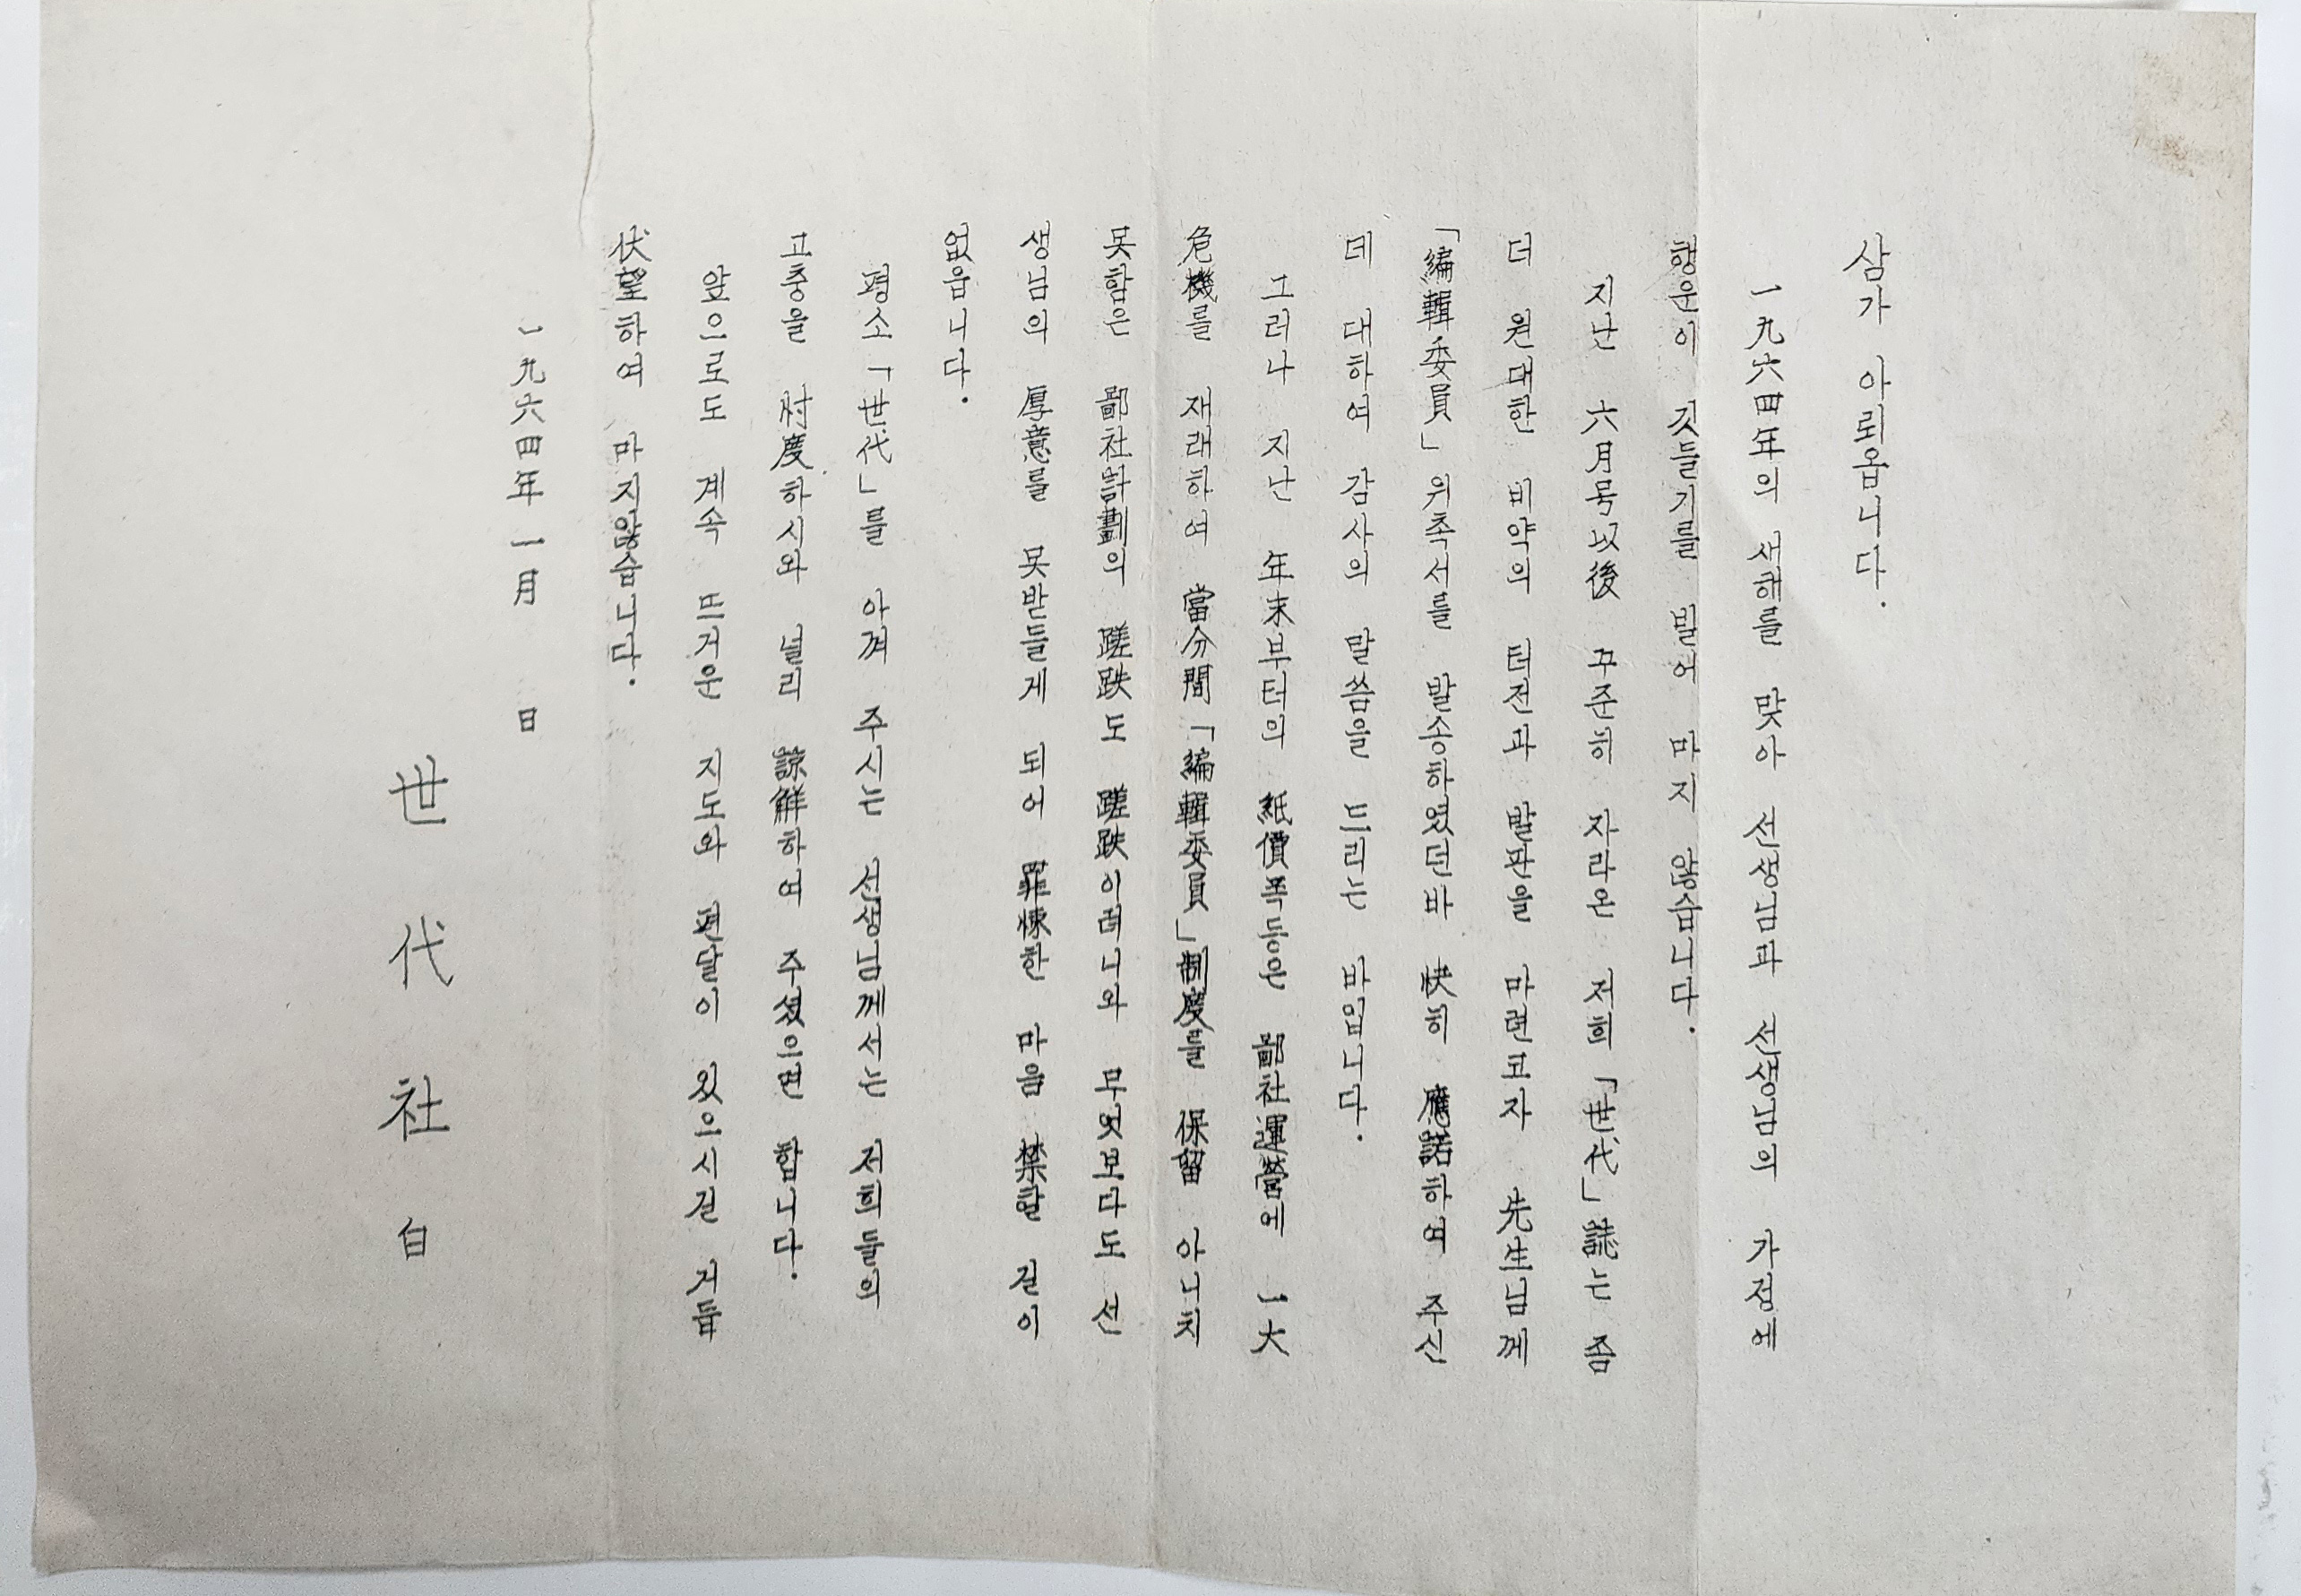 삼가 아뢰옵니다.
一九六四年의 새해를 맞아 선생님과 선생님의 가정에
행운이 깃들기를 빌어 마지 않습니다.
지난 六月号以後 꾸준히 자라온 저희 「世代」誌는 좀
더 원대한 비약의 터전과 발판을 마련코자 先生님께
「編輯委員」 위촉서를 발송하였던바 快히 應諾하여 주신
데 대하여 감사의 말씀을 드리는 바입니다.
그러나 지난 年末부터의 紙價폭등은 鄙社運営에 一大
危機를 재래하여 當分間 「編輯委員」制度를 保留 아니치
못함은 鄙社計劃의 蹉跌도 蹉跌이려니와 무엇보다도 선
생님의 厚意를 못받들게 되어 罪悚한 마음 禁할 길이
없읍니다.
평소 「世代」를 아껴 주시는 선생님께서는 저희들의
고충을 忖度하시와 널리 諒解하여 주셨으면 합니다.
앞으로도 계속 뜨거운 지도와 편달이 있으시길 거듭
伏望하여 마지않습니다.
一九六四年 一月 日
世代社 白